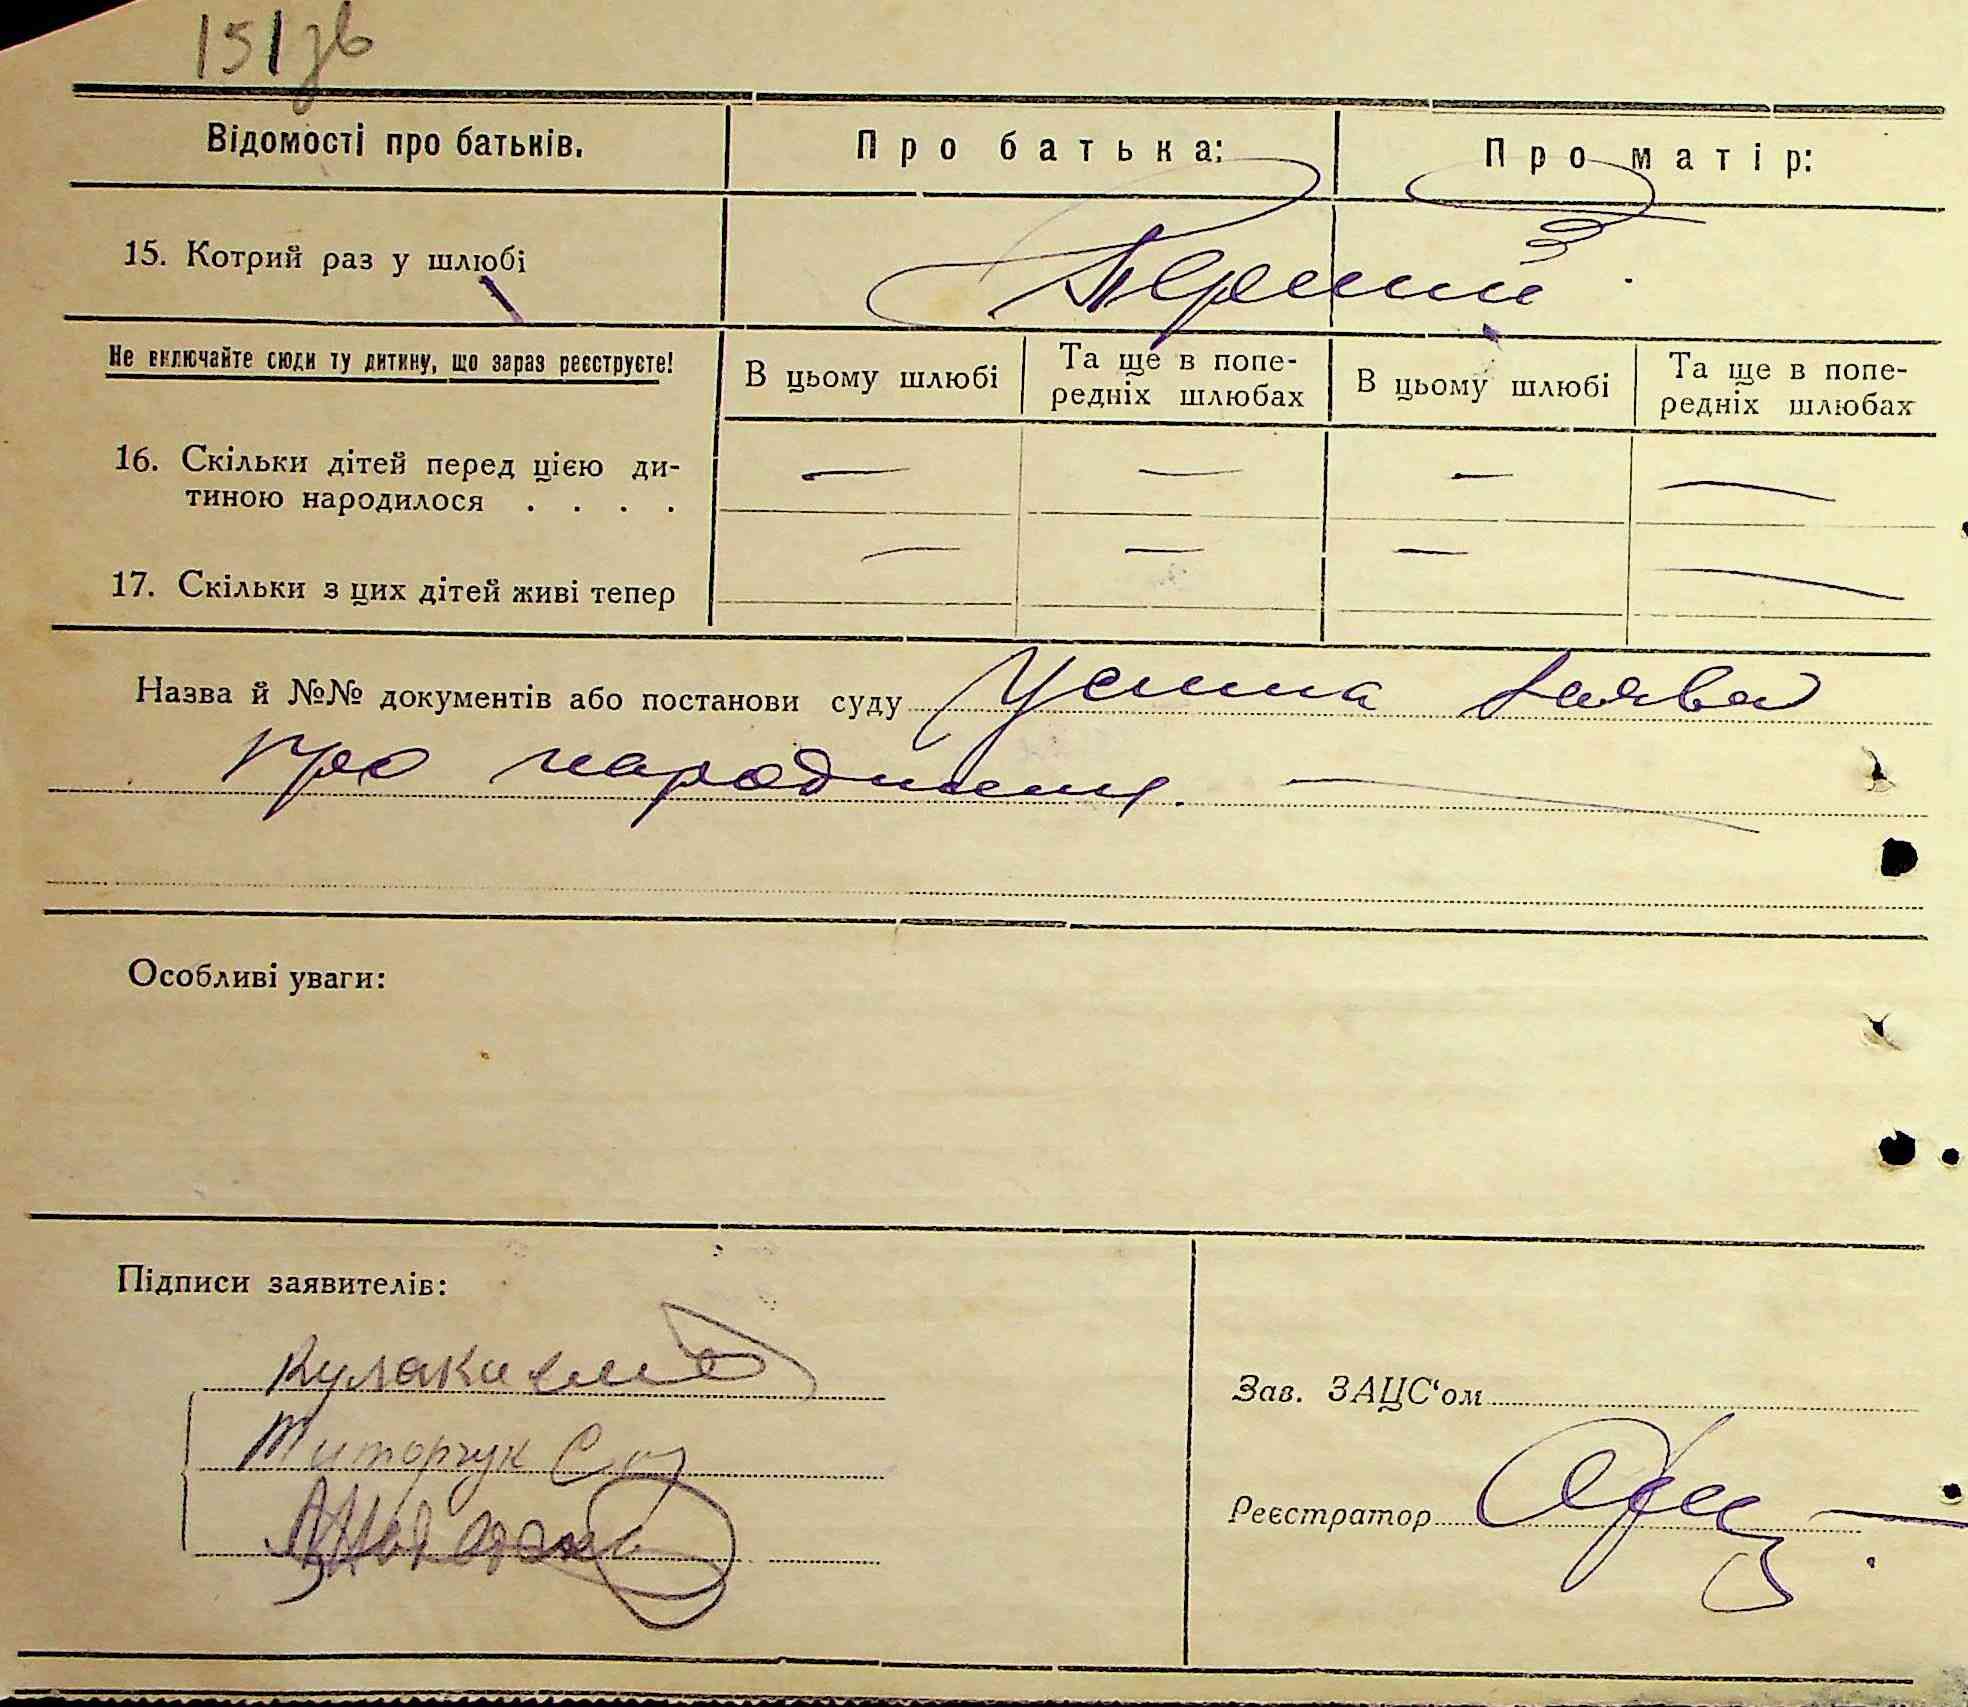 151 зв
Відомості про батьків. Про батька: Про матір:
15. Котрий раз у шлюбі Перший
Не включайте сюди ту дитину, що зараз реєструєте! В цьому шлюбі Та ще в попе- В цьому шлюбі Та ще в попе-
редніх шлюбах редніх шлюбах
16. Скільки дітей перед цією ди- — — — —
тиною народилося . . . .
17. Скільки з цих дітей живі тепер — — — —
Назва й №№ документів або постанови суду Усна заява
про народження. —
Особливі уваги:
Підписи заявителів:
Зав. ЗАЦС‘ом
Титорчук
Реєстратор